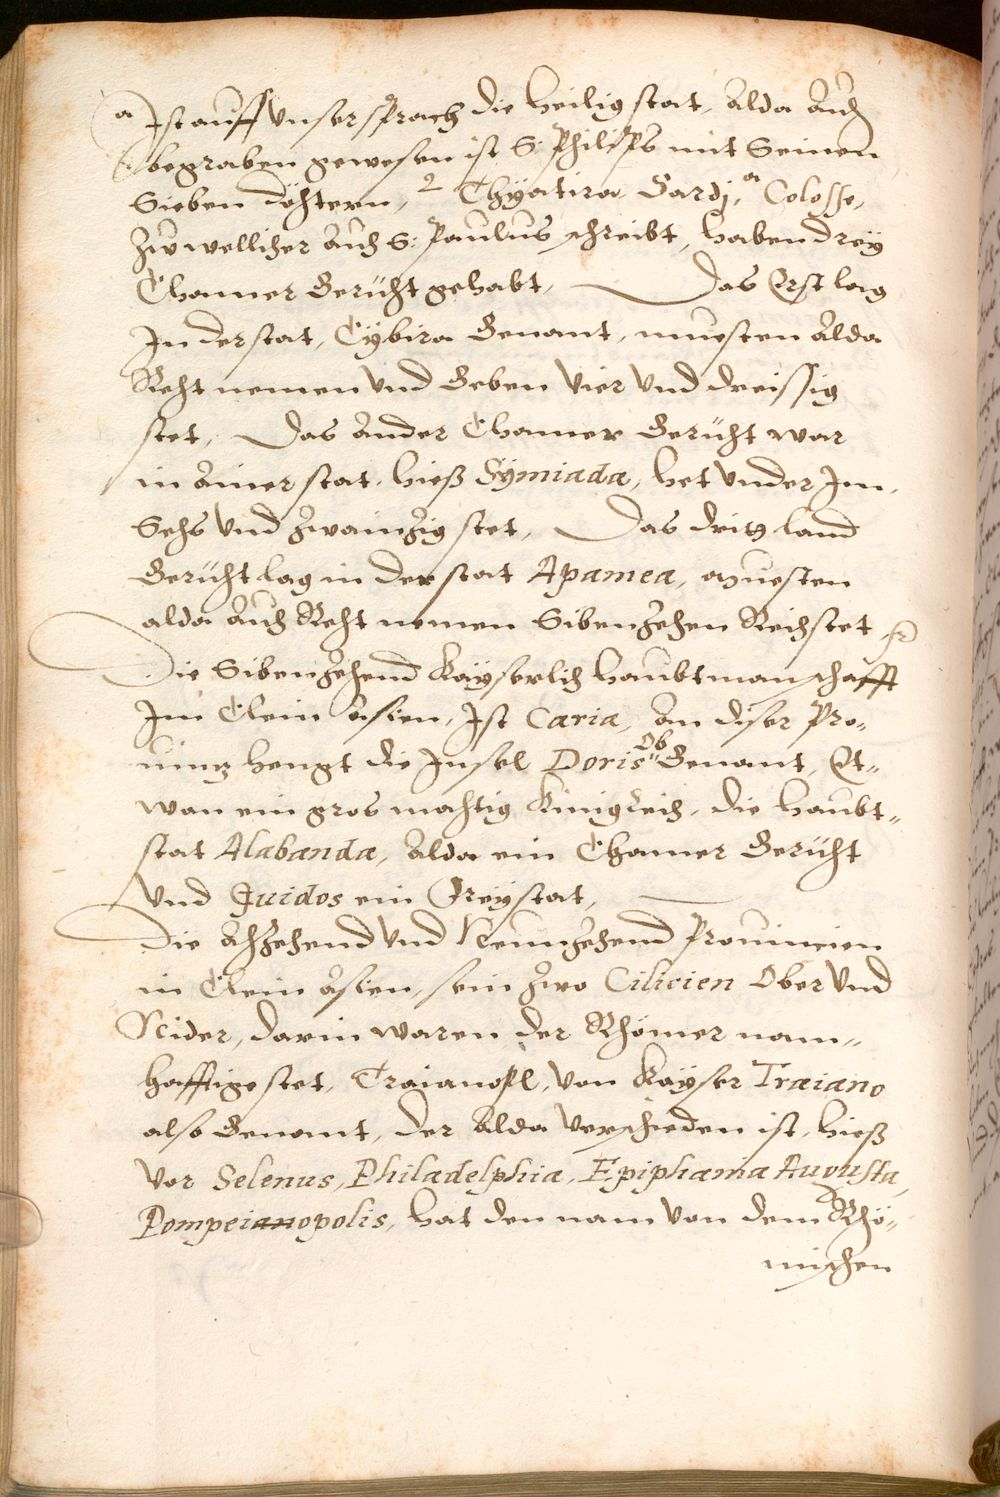 a Ist auff vnser sprach die heilig stat, alda auch
begraben gewesen ist S: Philips mit Seinen
Sieben döhtern, 2 Thyatira Sardj, a Colosse,
zuo wellicher auch S: Paulus schreibt, haben drey
Chamer Gericht gehabt, Das Erst lag
In der stat, Cybira Genant, muesten alda
Reht nemen vnd Geben vier vnd dreissig
stet, Das ander Chamer Gericht war
in ainer stat, hieß Symiada, het vnder Im,
Sehs vnd zwainzig stet, Das dritt land
Gericht lag in der stat Apamea, muesten
alda auch Reht nemen Sibenzehen Reichstet
Die Sibenzehend Kayserlich haubtmanschafft
Im Clein Asien, Ist Caria, an diser Pro„
uintz hengt die Insel Doris Ob Genant, Et„
wan ein gros mahtig Kinigreich, die haubt„
stat Alabanda, alda ein Chamer Gericht
vnd Guidos ein Freystat,
Die ahzehend vnd Neunzehend Prouincien
in Clein asien, sein zwo Cilicien Ober vnd
Nider, darin waren der Rhömer nam„
hafftige stet, Traianopl, von Kayser Traiano
also Genant, der alda verschieden ist, hieß
vor Selenus, Philadelphia, Epiphania Augusta,
Pompeianopolis, hat den nam von dem Rhö„
mischen